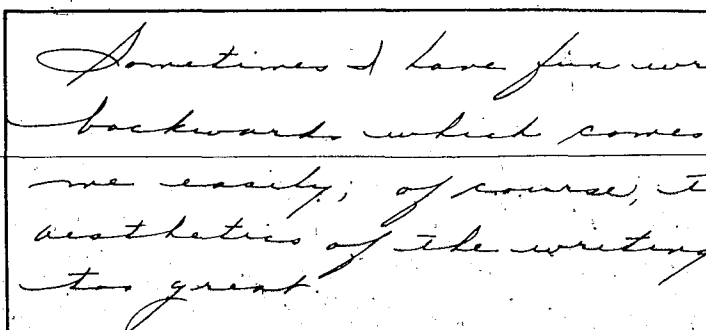 Sometimes I have fun wr
backwards which comes
me easily; of course, t
aesthetics of the writing
too great.